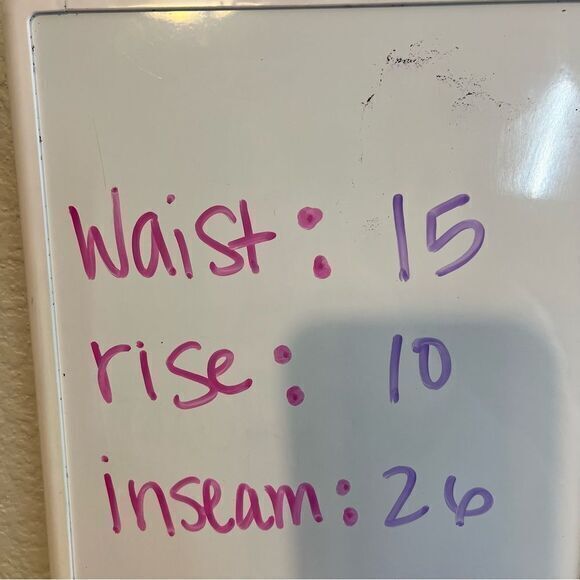 Waist: 15
rise: 10
inseam: 26